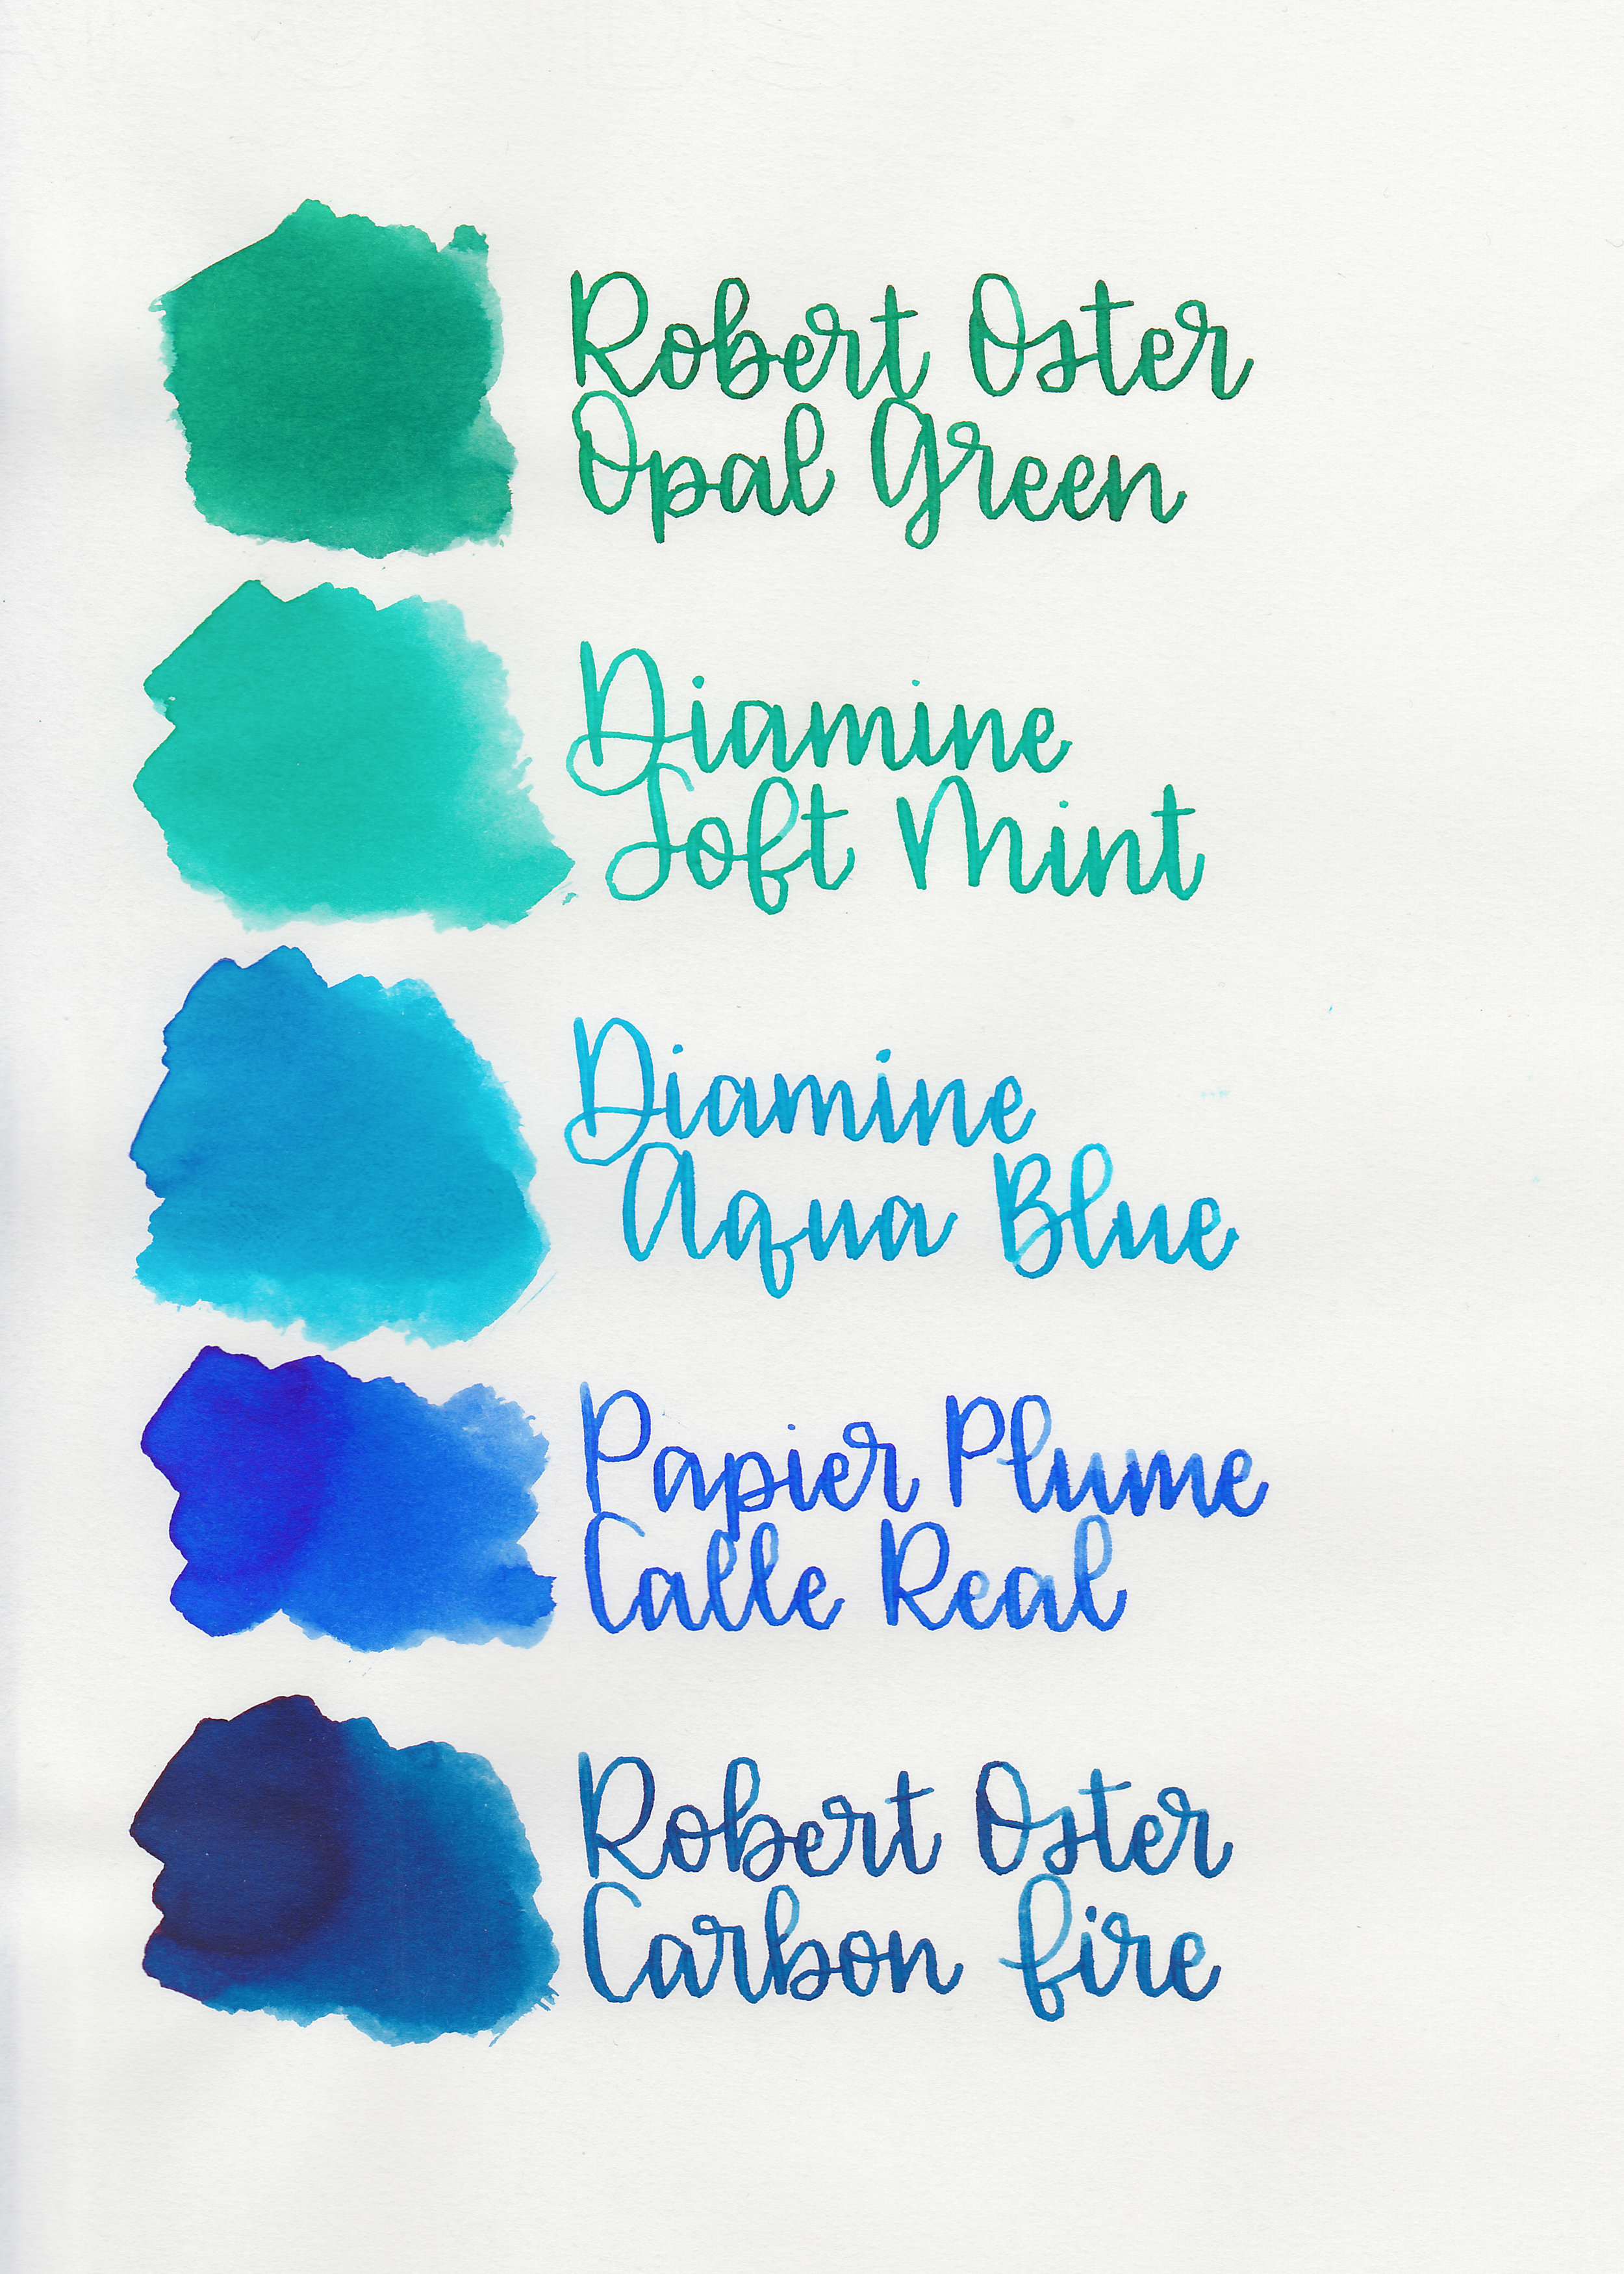 Robert Oster
Opal Green
Diamine
Soft Mint
Diamine
Aqua Blue
Papier Plume
Calle Real
Robert Oster
Carbon Fire